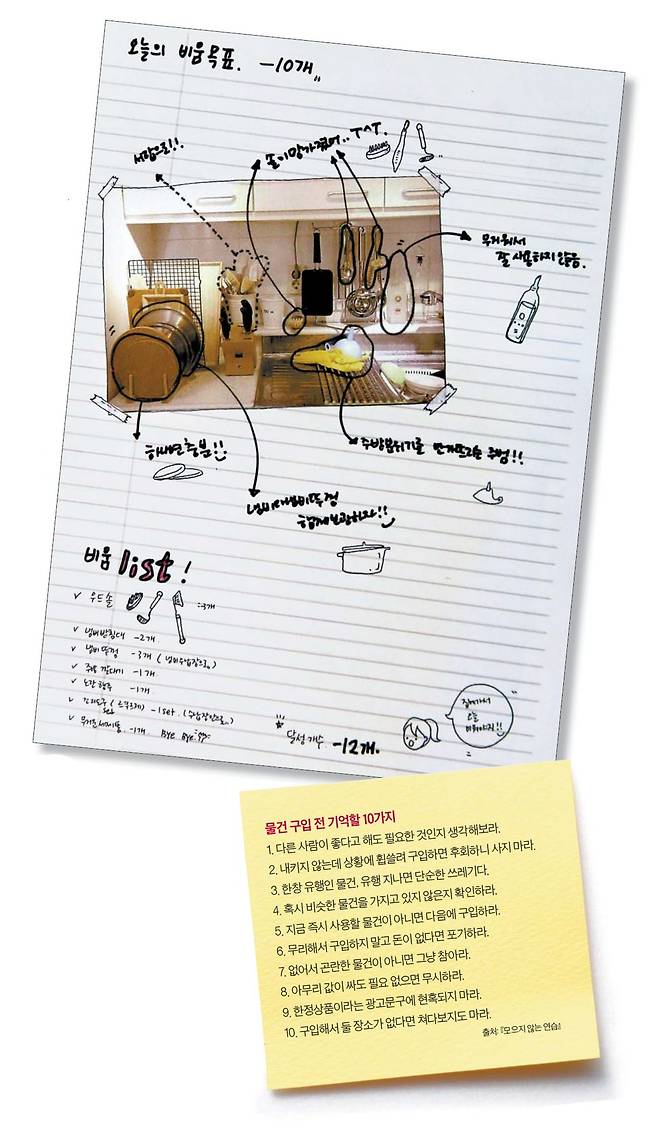 오늘의 비움목표. -10개
서랍으로!!
솔이망가졌어..T^T.
무거워서
잘 사용하지않음.
하나로충분!!
주방분위기를 망가뜨리는 주범!!
냄비대냄비뚜껑
함께보관하자!!
비움 list!
우드솔 -3개
냄비받침대 -2개
냄비뚜껑 -3개 (냄비수납장으로)
주방 깔대기 -1개
노란 행주 -1개
-1set. (수납장안으로)
무거운 -1개. Bye Bye
달성개수 -12개.
집에가서
오늘
비워야지!!
물건 구입 전 기억할 10가지
1. 다른 사람이 좋다고 해도 필요한 것인지 생각해보라.
2. 내키지 않는데 상황에 휩쓸려 구입하면 후회하니 사지 마라.
3. 한창 유행인 물건, 유행 지나면 단순한 쓰레기다.
4. 혹시 비슷한 물건을 가지고 있지 않은지 확인하라.
5. 지금 즉시 사용할 물건이 아니면 다음에 구입하라.
6. 무리해서 구입하지 말고 돈이 없다면 포기하라.
7. 없어서 곤란한 물건이 아니면 그냥 참아라.
8. 아무리 값이 싸도 필요 없으면 무시하라.
9. 한정상품이라는 광고문구에 현혹되지 마라.
10. 구입해서 둘 장소가 없다면 쳐다보지도 마라.
출처: 『모으지 않는 연습』